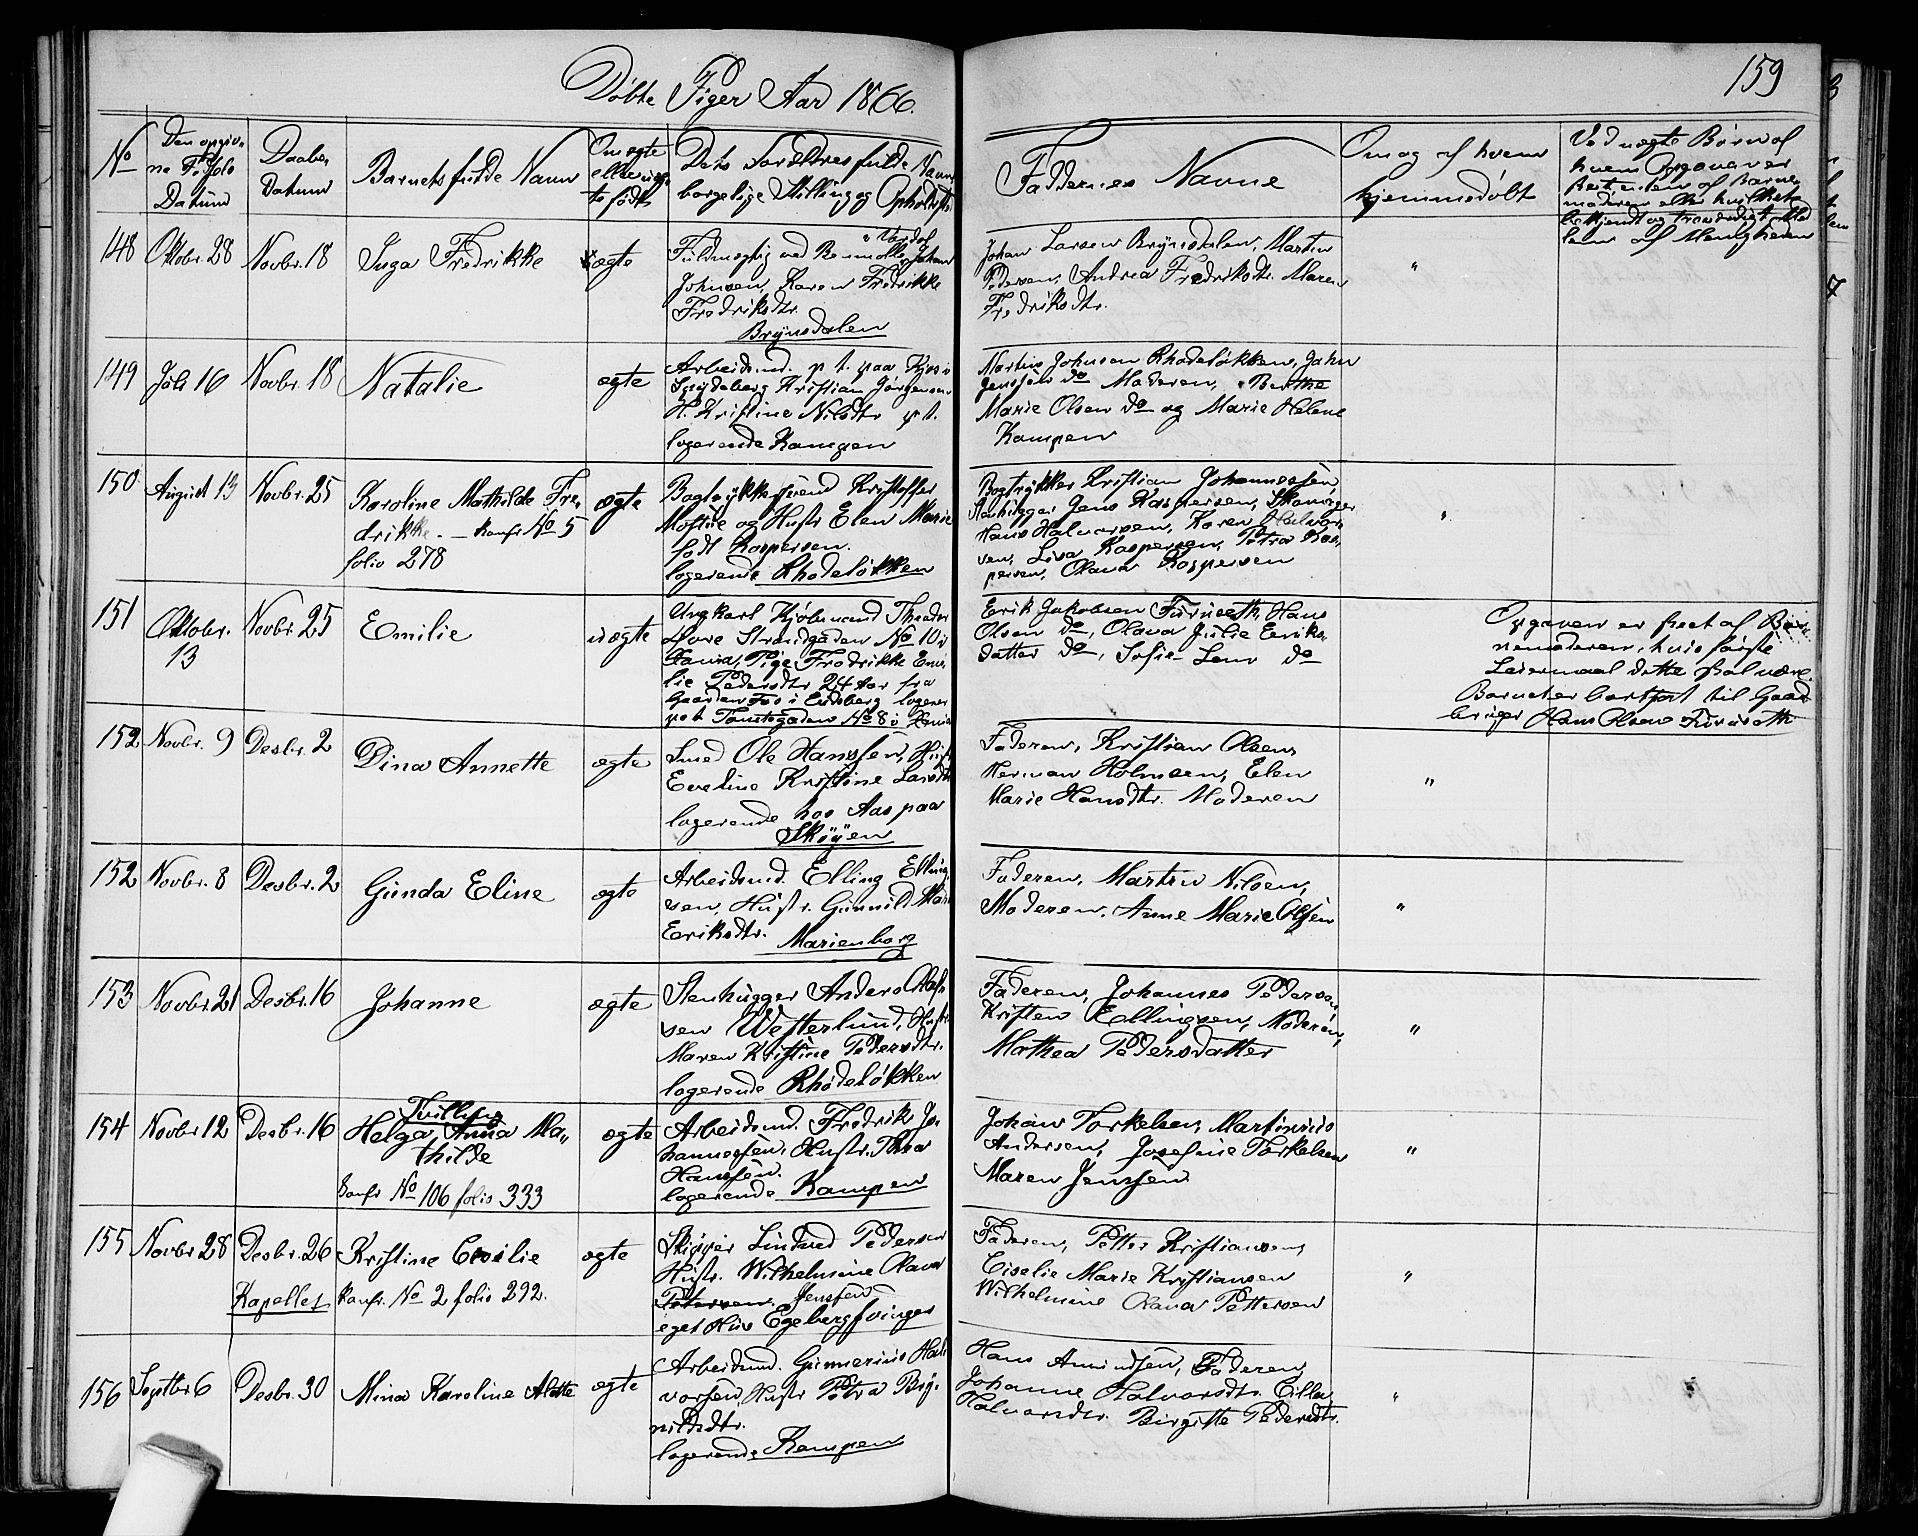 Døbte Piger Aar 1866.
159
No
Den opgiv-
ne Fødsels
Datum
Daabs
Datum
Barnets fulde Navn
Om ægte
eller uæg-
te født
Dets Forældres fulde Navn
borgelige Stilling og Opholdsst.
Faddernes Navne
Om og af hvem
hjemmedøbt
Ved uægte Børn af
hvem Opgaven er
Bekræften af Barne-
moderen eller hvilket
bekjendt og troværdigt Med
lem af Menigheden
148
Oktobr. 28
Novbr. 18
Inga Fredrikke
ægte
Fuldmægtig ved
Johan
Johnsen, Karen Fredrikke
Fredriksdtr.
Brynsdalen
Johan Larsen Brynsdalen, Martin
Pedersen, Andrea Fredriksdtr. Maren
Fredriksdtr.
"
149
Juli 16
Novbr. 18
Natalie
ægte
Arbeidsmd. p t. paa Kjos i
Spydeberg Kristian Jørgensen
H. Kristine Nilsdtr p t.
logerende Kampen
Martin Johnsen Rhodeløkken, John
Jenssen do Moderen, Berthe
Marie Olsen do og Marie Helene
Kampen
150
August 13
Novbr. 25
Karoline Mathilde Fre-
drikke. — Konfr No 5
folio 278
ægte
Bogtrykkersvend Kristoffer
Mostue og Hustr Elen Marie
født Kaspersen.
logerende Rhodeløkken
Bogtrykker Kristian Johannessen,
Stenhugger Jens Kaspersen, Skomager
Hans Halvorsen, Karen Halvor-
sen, Lisa Kaspersen, Petra Kas-
persen, Olava Kaspersen
"
151
Oktobr.
13
Novbr. 25
Emilie
uægte
Ungkarl Kjøbmand Theodor
Hove Strandgaden No 10 i
Xania, Pige Fredrikke Emi-
lie Pedersdtr 24 Aar fra
Gaarden Foss i Eidsberg logerer
p t Tomtegaden No 8 i Xania
Erik Jakobsen Furuseth, Hans
Olsen do, Olava Julie Eriks-
datter do, Sofie Lem do
Opgaven er skeet af Bar-
nemoderen, hvis første
Leiermaal dette skal være.
Barnet er bortsat til Gaard
bruger Hans Olsen Furuseth
152
Novbr. 9
Desbr. 2
Dina Annette
ægte
Smed Ole Hanssen, Hustr
Eveline Kristine Larsdtr
logerende hos Aas paa
Skøyen
Faderen, Kristian Olsen,
Herman Holmsen, Elen
Marie Hansdtr. Moderen
"
152
Novbr. 8
Desbr. 2
Gunda Eline
ægte
Arbeidsmd. Elling Elling-
sen, Hustr. Gunnild Marie
Eriksdtr. Marienborg
Faderen, Martin Nilsen,
Moderen, Anne Marie Olsen
"
153
Novbr. 21
Desbr. 16
Johanne
ægte
Stenhugger Anders Olaf-
sen Westerlund, Hustr
Maren Kristine Pedersdtr.
logerende Rhodeløkken
Faderen, Johannes Pedersen,
Kristen Ellingsen, Moderen,
Mathea Pedersdatter
"
154
Novbr 12
Desbr. 16
Tvilling
Helga Anna Ma-
thilde
Konfr No 106 folio 333
ægte
Arbeidsmd. Fredrik Jo-
hannessen, Hustr. Thea
Hanssen.
logerende Kampen
Johan Torkelsen, Martinius
Andersen, Josefine Torkelsen
Maren Jenssen
"
155
Novbr 28
Desbr. 26
Kapellet
Kristine Cecilie
Konfr. No 2 folio 292.
ægte
Skipper Lindved Pedersen
Hustr. Wilhelmine Olava
Petersen Jenssen
eget Hus Egebergsvingen
Faderen, Petter Kristiansen,
Ciselie Marie Kristiansen
Wilhelmine Olava Pettersen
"
156
Septbr 6
Desbr. 30
Mina Karoline Alette
ægte
Arbeidsmd. Gunnerius Hal-
vorsen, Hustr Petra Bry-
nildsdtr.
logerende Kampen
Hans Amundsen, Faderen,
Johanne Halvorsdtr. Eilla
Halvorsdtr. Birgitte Pedersdtr.
"